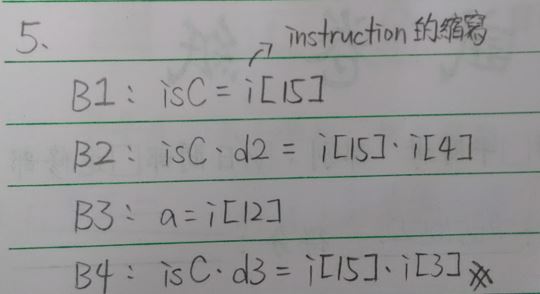 5、
instruction 的縮寫
B1: isC = i[15]
B2: isC·d2 = i[15]·i[4]
B3: a = i[12]
B4: isC·d3 = i[15]·i[3]